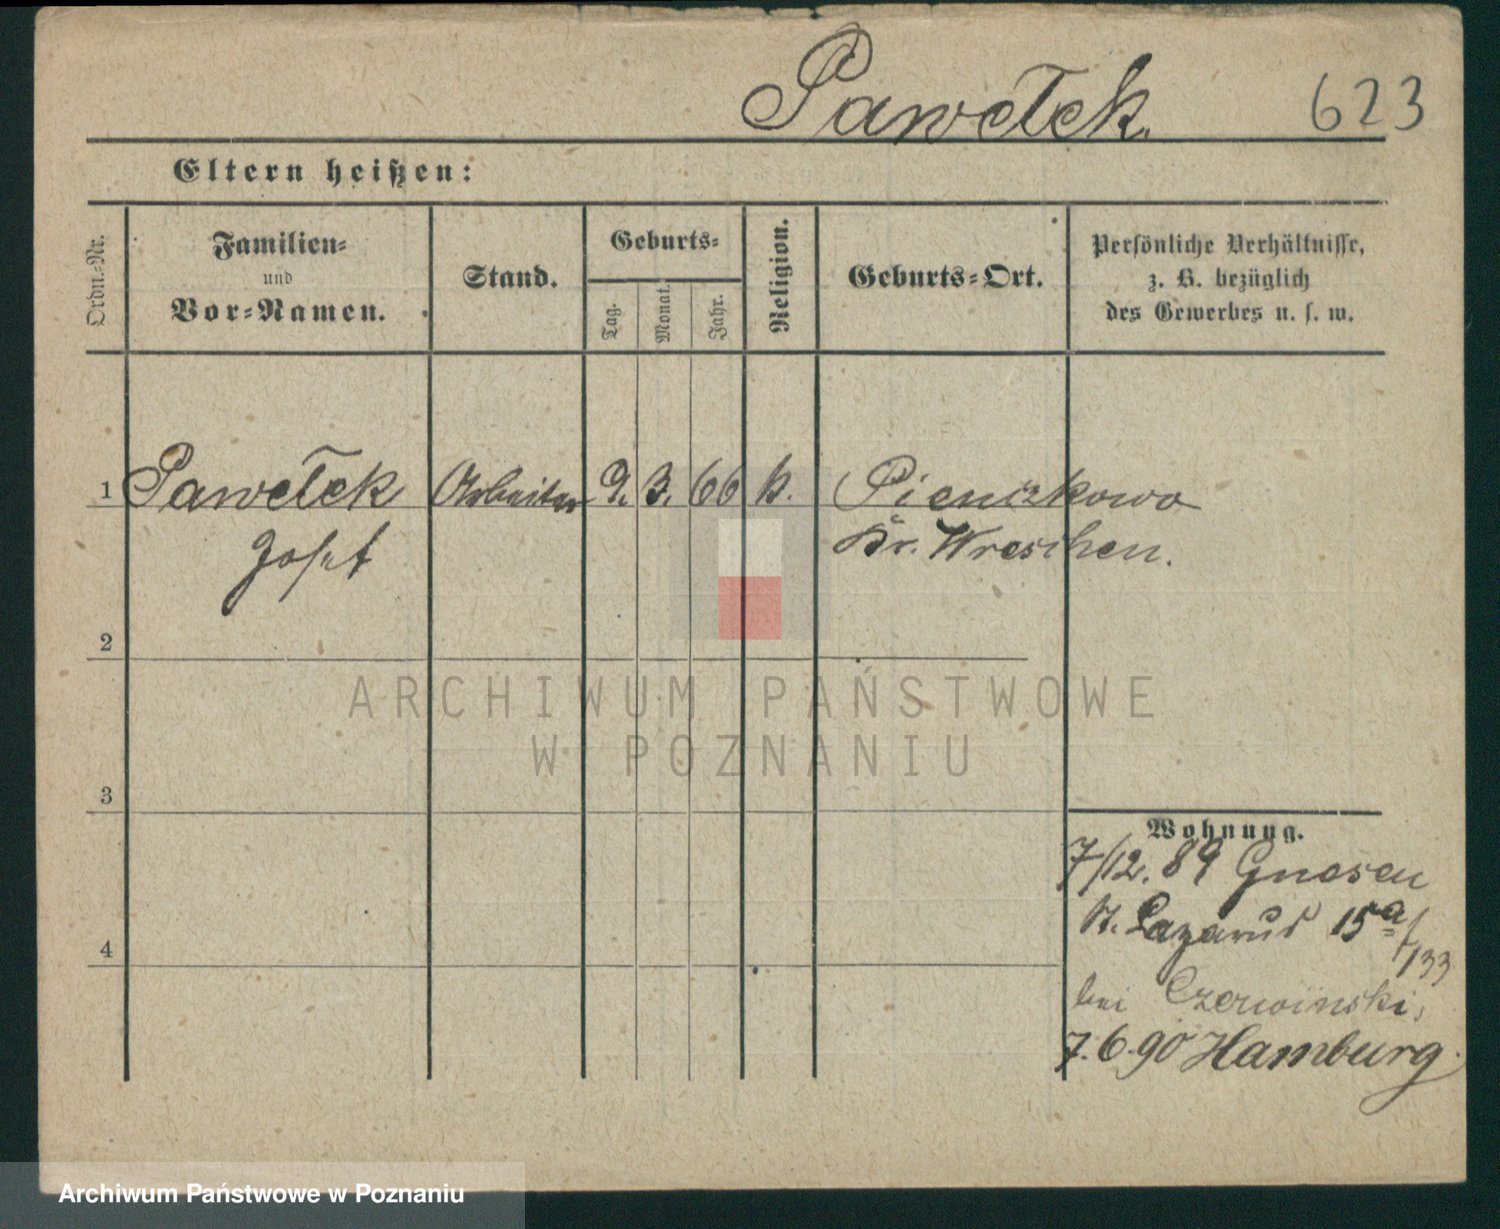 Pawełek.
623
Eltern heißen:
Ordn.-Nr.
Familien-
und
Vor-Namen.
Stand.
Geburts-
Tag.
Monat.
Jahr.
Religion.
Geburts-Ort.
Persönliche Verhältnisse,
z. B. bezüglich
des Gewerbes u. s. w.
1 Pawełek Arbeiter 9. 3. 66 k. Pienczkowo
Josef Kr. Wreschen.
2
ARCHIWUM PAŃSTWOWE
W POZNANIU
3
Wohnung.
7/12. 89 Gnesen
St. Lazarus 15a/133
4
bei Czerwinski,
7.6.90 Hamburg.
Archiwum Państwowe w Poznaniu